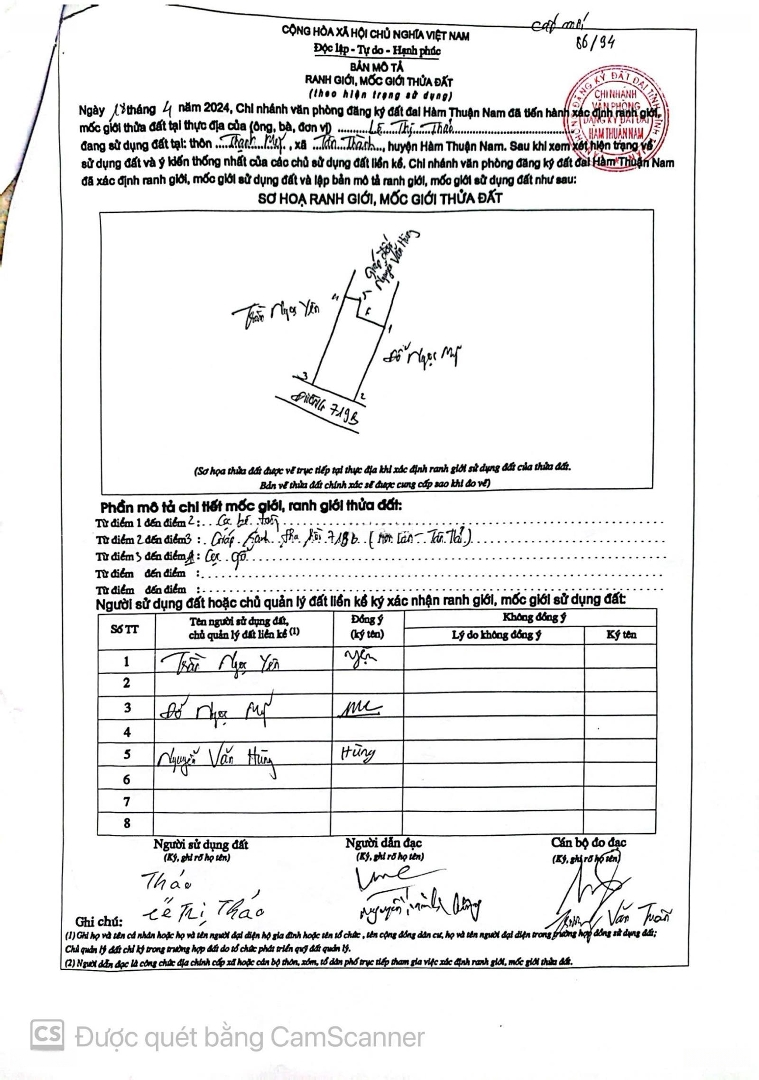 CỘNG HÒA XÃ HỘI CHỦ NGHĨA VIỆT NAM
Độc lập - Tự do - Hạnh phúc
cấp mới
86/94
BẢN MÔ TẢ
RANH GIỚI, MỐC GIỚI THỬA ĐẤT
(theo hiện trạng sử dụng)
CHI NHÁNH
VĂN PHÒNG
ĐĂNG KÝ ĐẤT ĐAI
HÀM THUẬN NAM
Ngày tháng 4 năm 2024, Chi nhánh văn phòng đăng ký đất đai Hàm Thuận Nam đã tiến hành xác định ranh giới,
mốc giới thửa đất tại thực địa của (ông, bà, đơn vị) Lê Thị Thảo
đang sử dụng đất tại: thôn Thanh Mỹ, xã Tân Thành, huyện Hàm Thuận Nam. Sau khi xem xét hiện trạng về
sử dụng đất và ý kiến thống nhất của các chủ sử dụng đất liền kề. Chi nhánh văn phòng đăng ký đất đai Hàm Thuận Nam
đã xác định ranh giới, mốc giới sử dụng đất và lập bản mô tả ranh giới, mốc giới sử dụng đất như sau:
SƠ HOẠ RANH GIỚI, MỐC GIỚI THỬA ĐẤT
Giáp đất
Nguyễn Văn Hùng
4 5
Trần Ngọc Yên
6
1
Đỗ Ngọc Mỹ
3
2
Đường 719B
(Sơ họa thửa đất được vẽ trực tiếp tại thực địa khi xác định ranh giới sử dụng đất của thửa đất.
Bản vẽ thửa đất chính xác sẽ được cung cấp sau khi đo vẽ)
Phần mô tả chi tiết mốc giới, ranh giới thửa đất:
Từ điểm 1 đến điểm 2: Cọc bê tông
Từ điểm 2 đến điểm 3 : Giáp 719b
Từ điểm 3 đến điểm 4: Cọc gỗ
Từ điểm đến điểm :
Từ điểm đến điểm :
Người sử dụng đất hoặc chủ quản lý đất liền kề ký xác nhận ranh giới, mốc giới sử dụng đất:
Số TT Tên người sử dụng đất, chủ quản lý đất liền kề (1) Đồng ý (ký tên) Không đồng ý
Lý do không đồng ý Ký tên
1 Trần Ngọc Yên Yên
2
3 Đỗ Ngọc Mỹ
4
5 Nguyễn Văn Hùng Hùng
6
7
8
Người sử dụng đất Người dẫn đạc Cán bộ đo đạc
(Ký, ghi rõ họ tên) (Ký, ghi rõ họ tên) (Ký, ghi rõ họ tên)
Thảo
Lê Thị Thảo Nguyễn Văn Tuấn
Ghi chú:
(1) Ghi họ và tên cá nhân hoặc họ và tên người đại diện hộ gia đình hoặc tên tổ chức , tên cộng đồng dân cư, họ và tên người đại diện trong trường hợp đồng sử dụng đất;
Chủ quản lý đất chỉ ký trong trường hợp đất do tổ chức phát triển quỹ đất quản lý.
(2) Người dẫn đạc là công chức địa chính cấp xã hoặc cán bộ thôn, xóm, tổ dân phố trực tiếp tham gia việc xác định ranh giới, mốc giới thửa đất.
CS Được quét bằng CamScanner